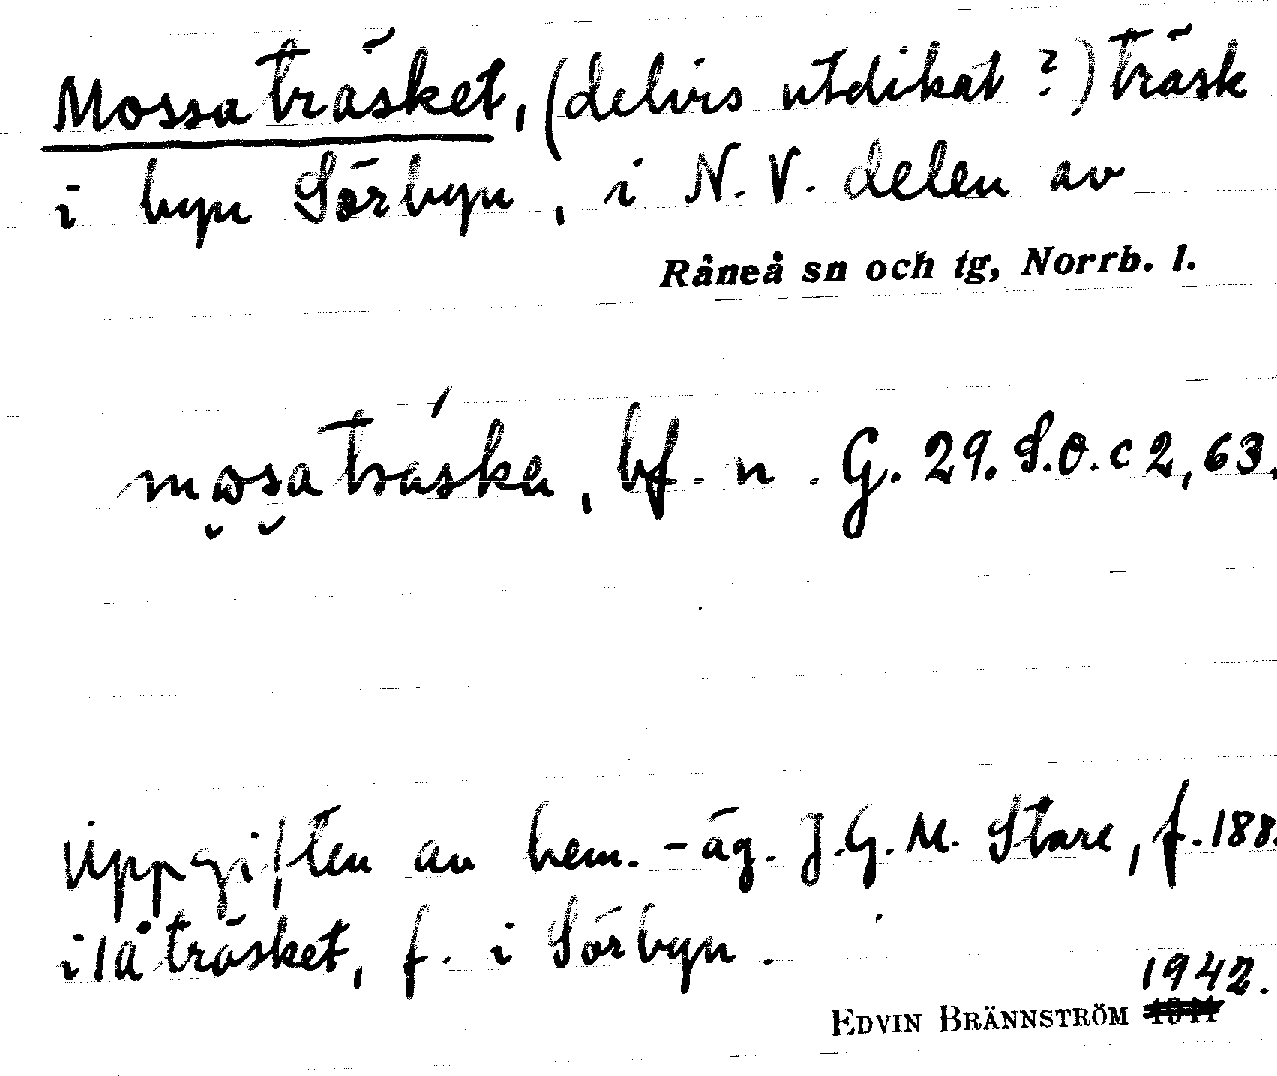 Mossaträsket, (delvis utdikat?) träsk
i byn Sörbyn, i N.V. delen av
Råneå sn och tg, Norrb. l.
bf. n. G. 29. S.O. c 2, 63,
Uppgiften av hem.-äg. J.G.M. Stare, f. 188
träsket, f. i Sörbyn.
1942.
EDVIN BRÄNNSTRÖM 1941